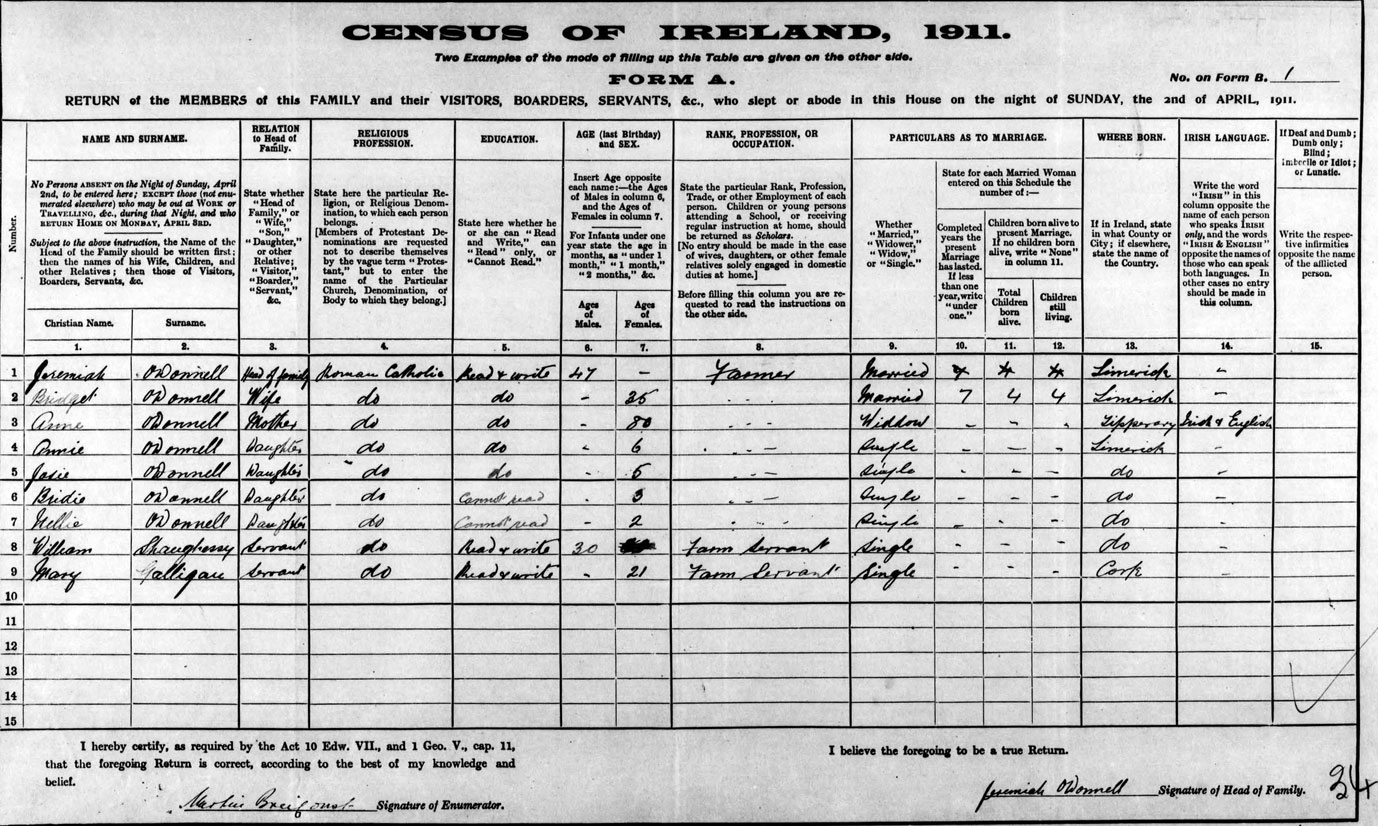 CENSUS OF IRELAND, 1911.
Two Examples of the mode of filling up this Table are given on the other side.
FORM A.
No. on Form B. 1
RETURN of the MEMBERS of this FAMILY and their VISITORS, BOARDERS, SERVANTS, &c., who slept or abode in this House on the night of SUNDAY, the 2nd of APRIL, 1911.
Number.
NAME AND SURNAME.
No Persons ABSENT on the Night of Sunday, April
2nd, to be entered here; EXCEPT those (not enu-
merated elsewhere) who may be out at WORK or
TRAVELLING, &c., during that Night, and who
RETURN HOME ON MONDAY, APRIL 3RD.
Subject to the above instruction, the Name of the
Head of the Family should be written first;
then the names of his Wife, Children, and
other Relatives; then those of Visitors,
Boarders, Servants, &c.
Christian Name.
Surname.
1.
2.
RELATION
to Head of
Family.
State whether
"Head of
Family," or
"Wife,"
"Son,"
"Daughter,"
or other
Relative;
"Visitor,"
"Boarder,"
"Servant,"
&c.
3.
RELIGIOUS
PROFESSION.
State here the particular Re-
ligion, or Religious Denom-
ination, to which each person
belongs.
[Members of Protestant De-
nominations are requested
not to describe themselves
by the vague term "Protes-
tant," but to enter the
name of the Particular
Church, Denomination, or
Body to which they belong.]
4.
EDUCATION.
State here whether he
or she can "Read
and Write," can
"Read" only, or
"Cannot Read."
5.
AGE (last Birthday)
and SEX.
Insert Age opposite
each name:—the Ages
of Males in column 6,
and the Ages of
Females in column 7.
For Infants under one
year state the age in
months, as "under 1
month," "1 month,"
"2 months," &c.
Ages
of
Males.
Ages
of
Females.
6.
7.
RANK, PROFESSION, OR
OCCUPATION.
State the particular Rank, Profession,
Trade, or other Employment of each
person. Children or young persons
attending a School, or receiving
regular instruction at home, should
be returned as Scholars.
[No entry should be made in the case
of wives, daughters, or other female
relatives solely engaged in domestic
duties at home.]
Before filling this column you are re-
quested to read the instructions on
the other side.
8.
PARTICULARS AS TO MARRIAGE.
Whether
"Married,"
"Widower,"
"Widow,"
or "Single."
9.
State for each Married Woman
entered on this Schedule the
number of:—
Completed
years the
present
Marriage
has lasted.
If less
than one
year, write
"under
one."
10.
Children born alive to
present Marriage.
If no children born
alive, write "None"
in column 11.
Total
Children
born
alive.
11.
Children
still
living.
12.
WHERE BORN.
If in Ireland, state
in what County or
City; if elsewhere,
state the name of
the Country.
13.
IRISH LANGUAGE.
Write the word
"IRISH" in this
column opposite the
name of each person
who speaks IRISH
only, and the words
"IRISH & ENGLISH"
opposite the names of
those who can speak
both languages. In
other cases no entry
should be made in
this column.
14.
If Deaf and Dumb;
Dumb only;
Blind;
Imbecile or Idiot;
or Lunatic.
Write the respec-
tive infirmities
opposite the name
of the afflicted
person.
15.
1 Jeremiah O'Donnell Head of family Roman Catholic Read & write 47 – Farmer Married 7 4 4 Limerick –
2 Bridget O'Donnell Wife do do - 35 Married 7 4 4 Limerick -
3 Anne O'Donnell Mother do do - 80 Widdow - - - Tipperary Irish & English
4 Annie O'Donnell Daughter do do - 6 Single - - - Limerick
5 Josie O'Donnell Daughter do do - 5 Single - - - do
6 Bridie O'Donnell Daughter do Cannot read - 3 Single - - - do
7 Nellie O'Donnell Daughter do Cannot read - 2 Single - - - do
8 William Shaughessy Servant do Read & write 30 Farm Servant Single - - - do
9 Mary Galligan Servant do Read & write - 21 Farm Servant Single - - - Cork -
10
11
12
13
14
15
I hereby certify, as required by the Act 10 Edw. VII., and 1 Geo. V., cap. 11,
that the foregoing Return is correct, according to the best of my knowledge and
belief.
Martin Signature of Enumerator.
I believe the foregoing to be a true Return.
Jeremiah O'Donnell Signature of Head of Family.
34